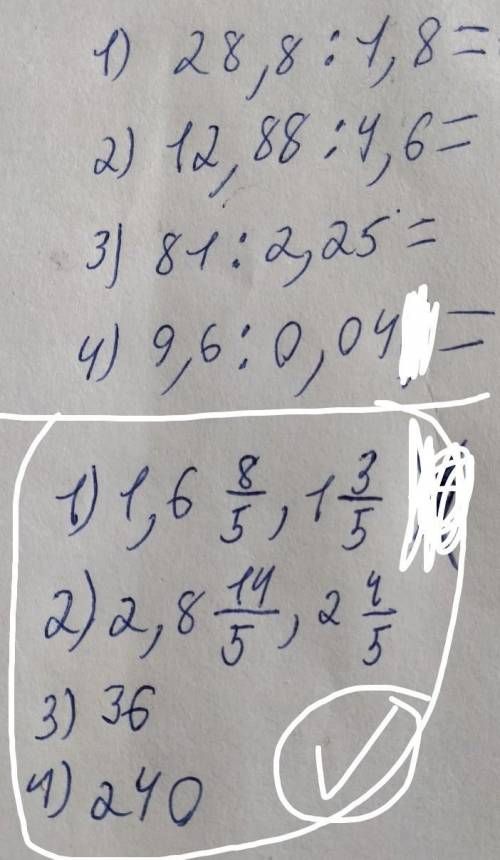 1) 28,8:1,8=
2) 12,88:4,6=
3) 81:2,25=
4) 9,6:0,04=
1) 1,6 8/5, 1 3/5
2) 2,8 14/5, 2 4/5
3) 36
4) 240